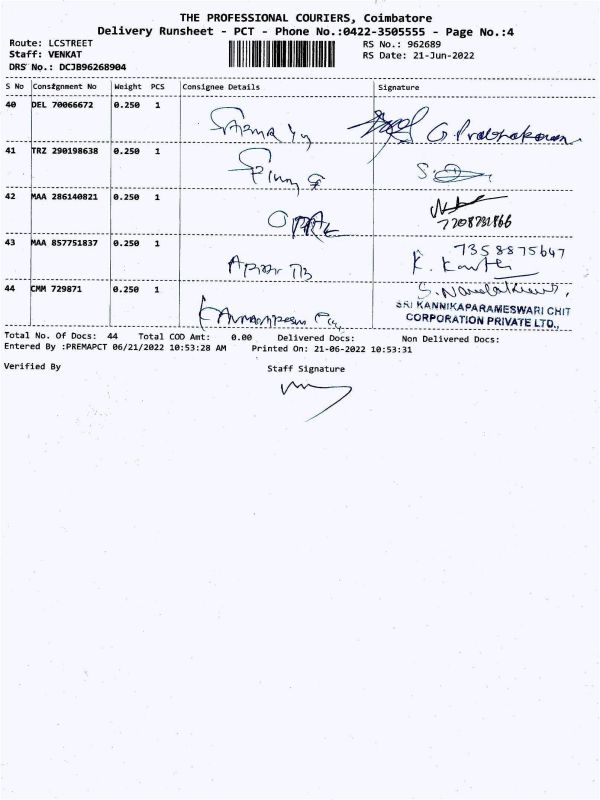 THE PROFESSIONAL COURIERS, Coimbatore
Delivery Runsheet - PCT - Phone No.:0422-3505555 - Page No.:4
Route: LCSTREET RS No.: 962689
Staff: VENKAT RS Date: 21-Jun-2022
DRS No.: DCJB96268904
S No Consignment No Weight PCS Consignee Details Signature
40 DEL 70066672 0.250 1
G Prabhakaran
41 TRZ 290198638 0.250 1
S.
42 MAA 286140821 0.250 1
43 MAA 857751837 0.250 1 7358875647
K.
44 CMM 729871 0.250 1 S.
SRI KANNIKAPARAMESWARI CHIT
CORPORATION PRIVATE LTD.,
Total No. Of Docs: 44 Total COD Amt: 0.00 Delivered Docs: Non Delivered Docs:
Entered By :PREMAPCT 06/21/2022 10:53:28 AM Printed On: 21-06-2022 10:53:31
Verified By Staff Signature